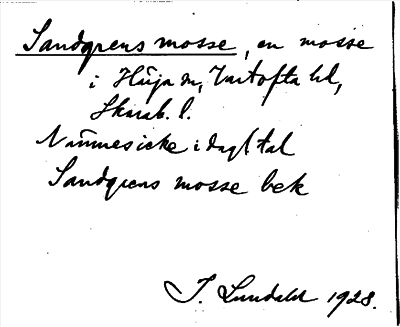 Sandgrens mosse, en mosse
i Höja sn, Vartofta hd,
Skarab. l.
Nämnes icke i dagl. tal
Sandgrens mosse bek
J. Lundahl 1928.